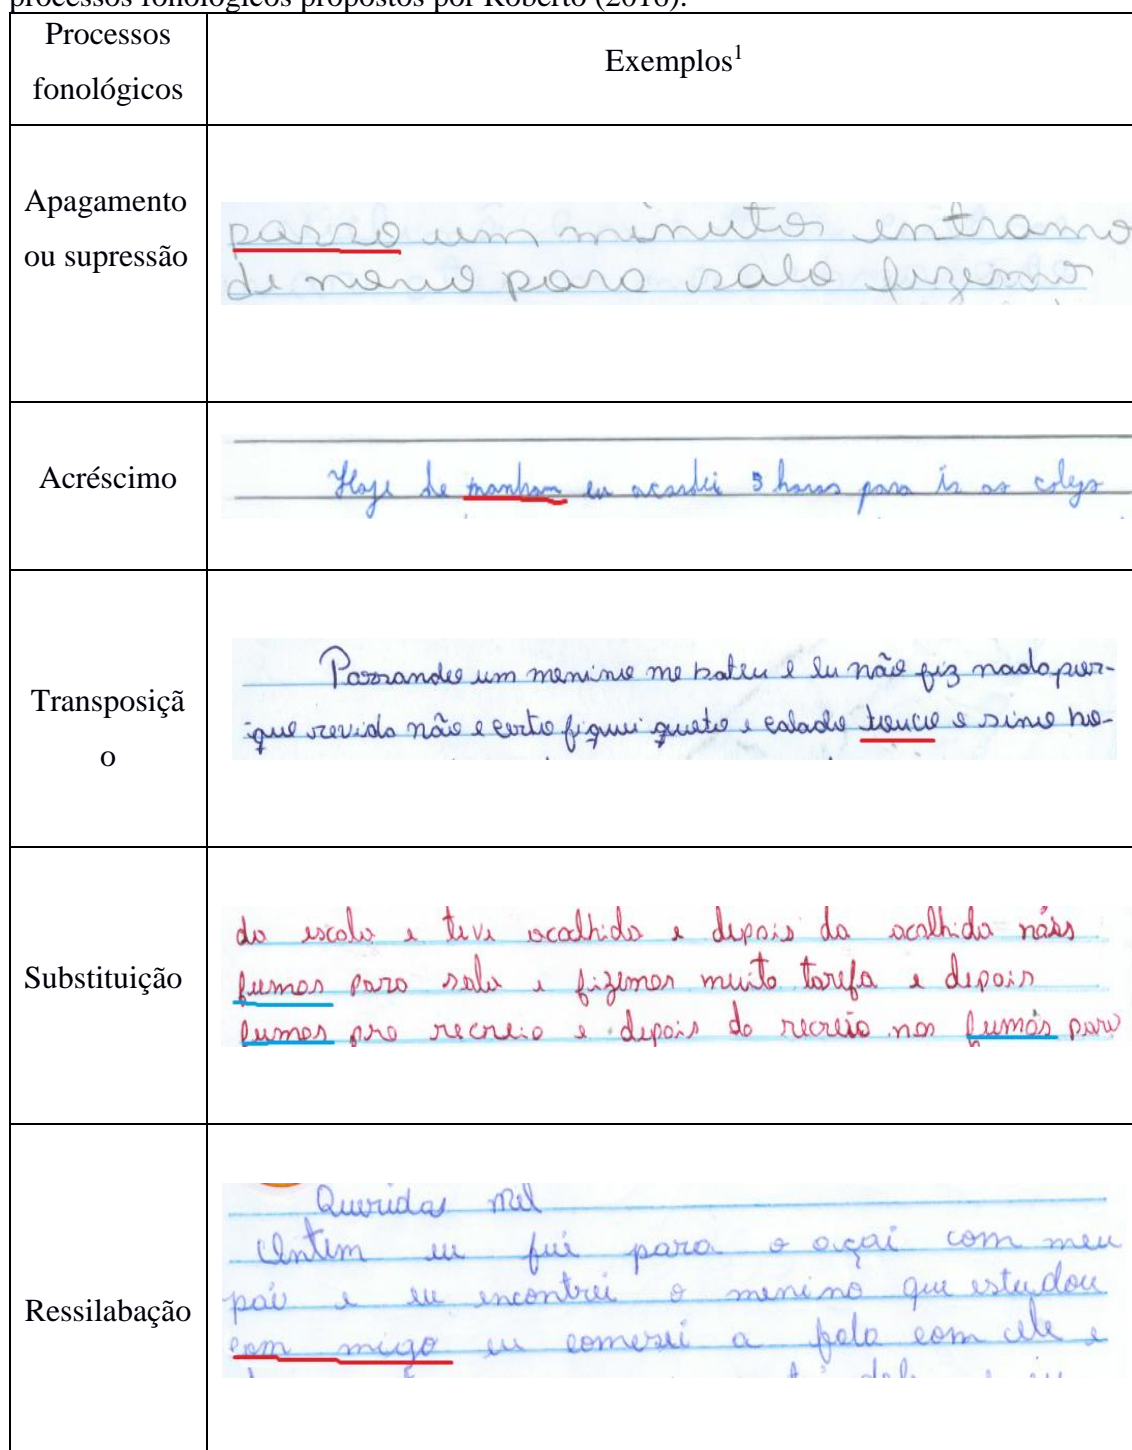 processos fonológicos propostos por Roberto (2016).
Processos
fonológicos
Exemplos1
Apagamento
ou supressão
passo um minuto entramo
de novo para sala fizemo
Acréscimo
Hoje de manham eu acordei 5 horas para ir ao colego
Transposiçã
o
Passando um menino me bateu e eu não fiz nada por-
que revida não e certo fiquei queto e calado toucu o sino ho-
Substituição
da escola e teve acolhida e depois da acolhida nóss
fumos para sala e fizemos muito tarefa e depois
fumos pro recreio e depois do recreio nos fumos para
Ressilabação
Queridas mel
Ontem eu fui para o açai com meu
pai e eu encontrei o menino que estudou
com migo eu comesei a fala com ele e